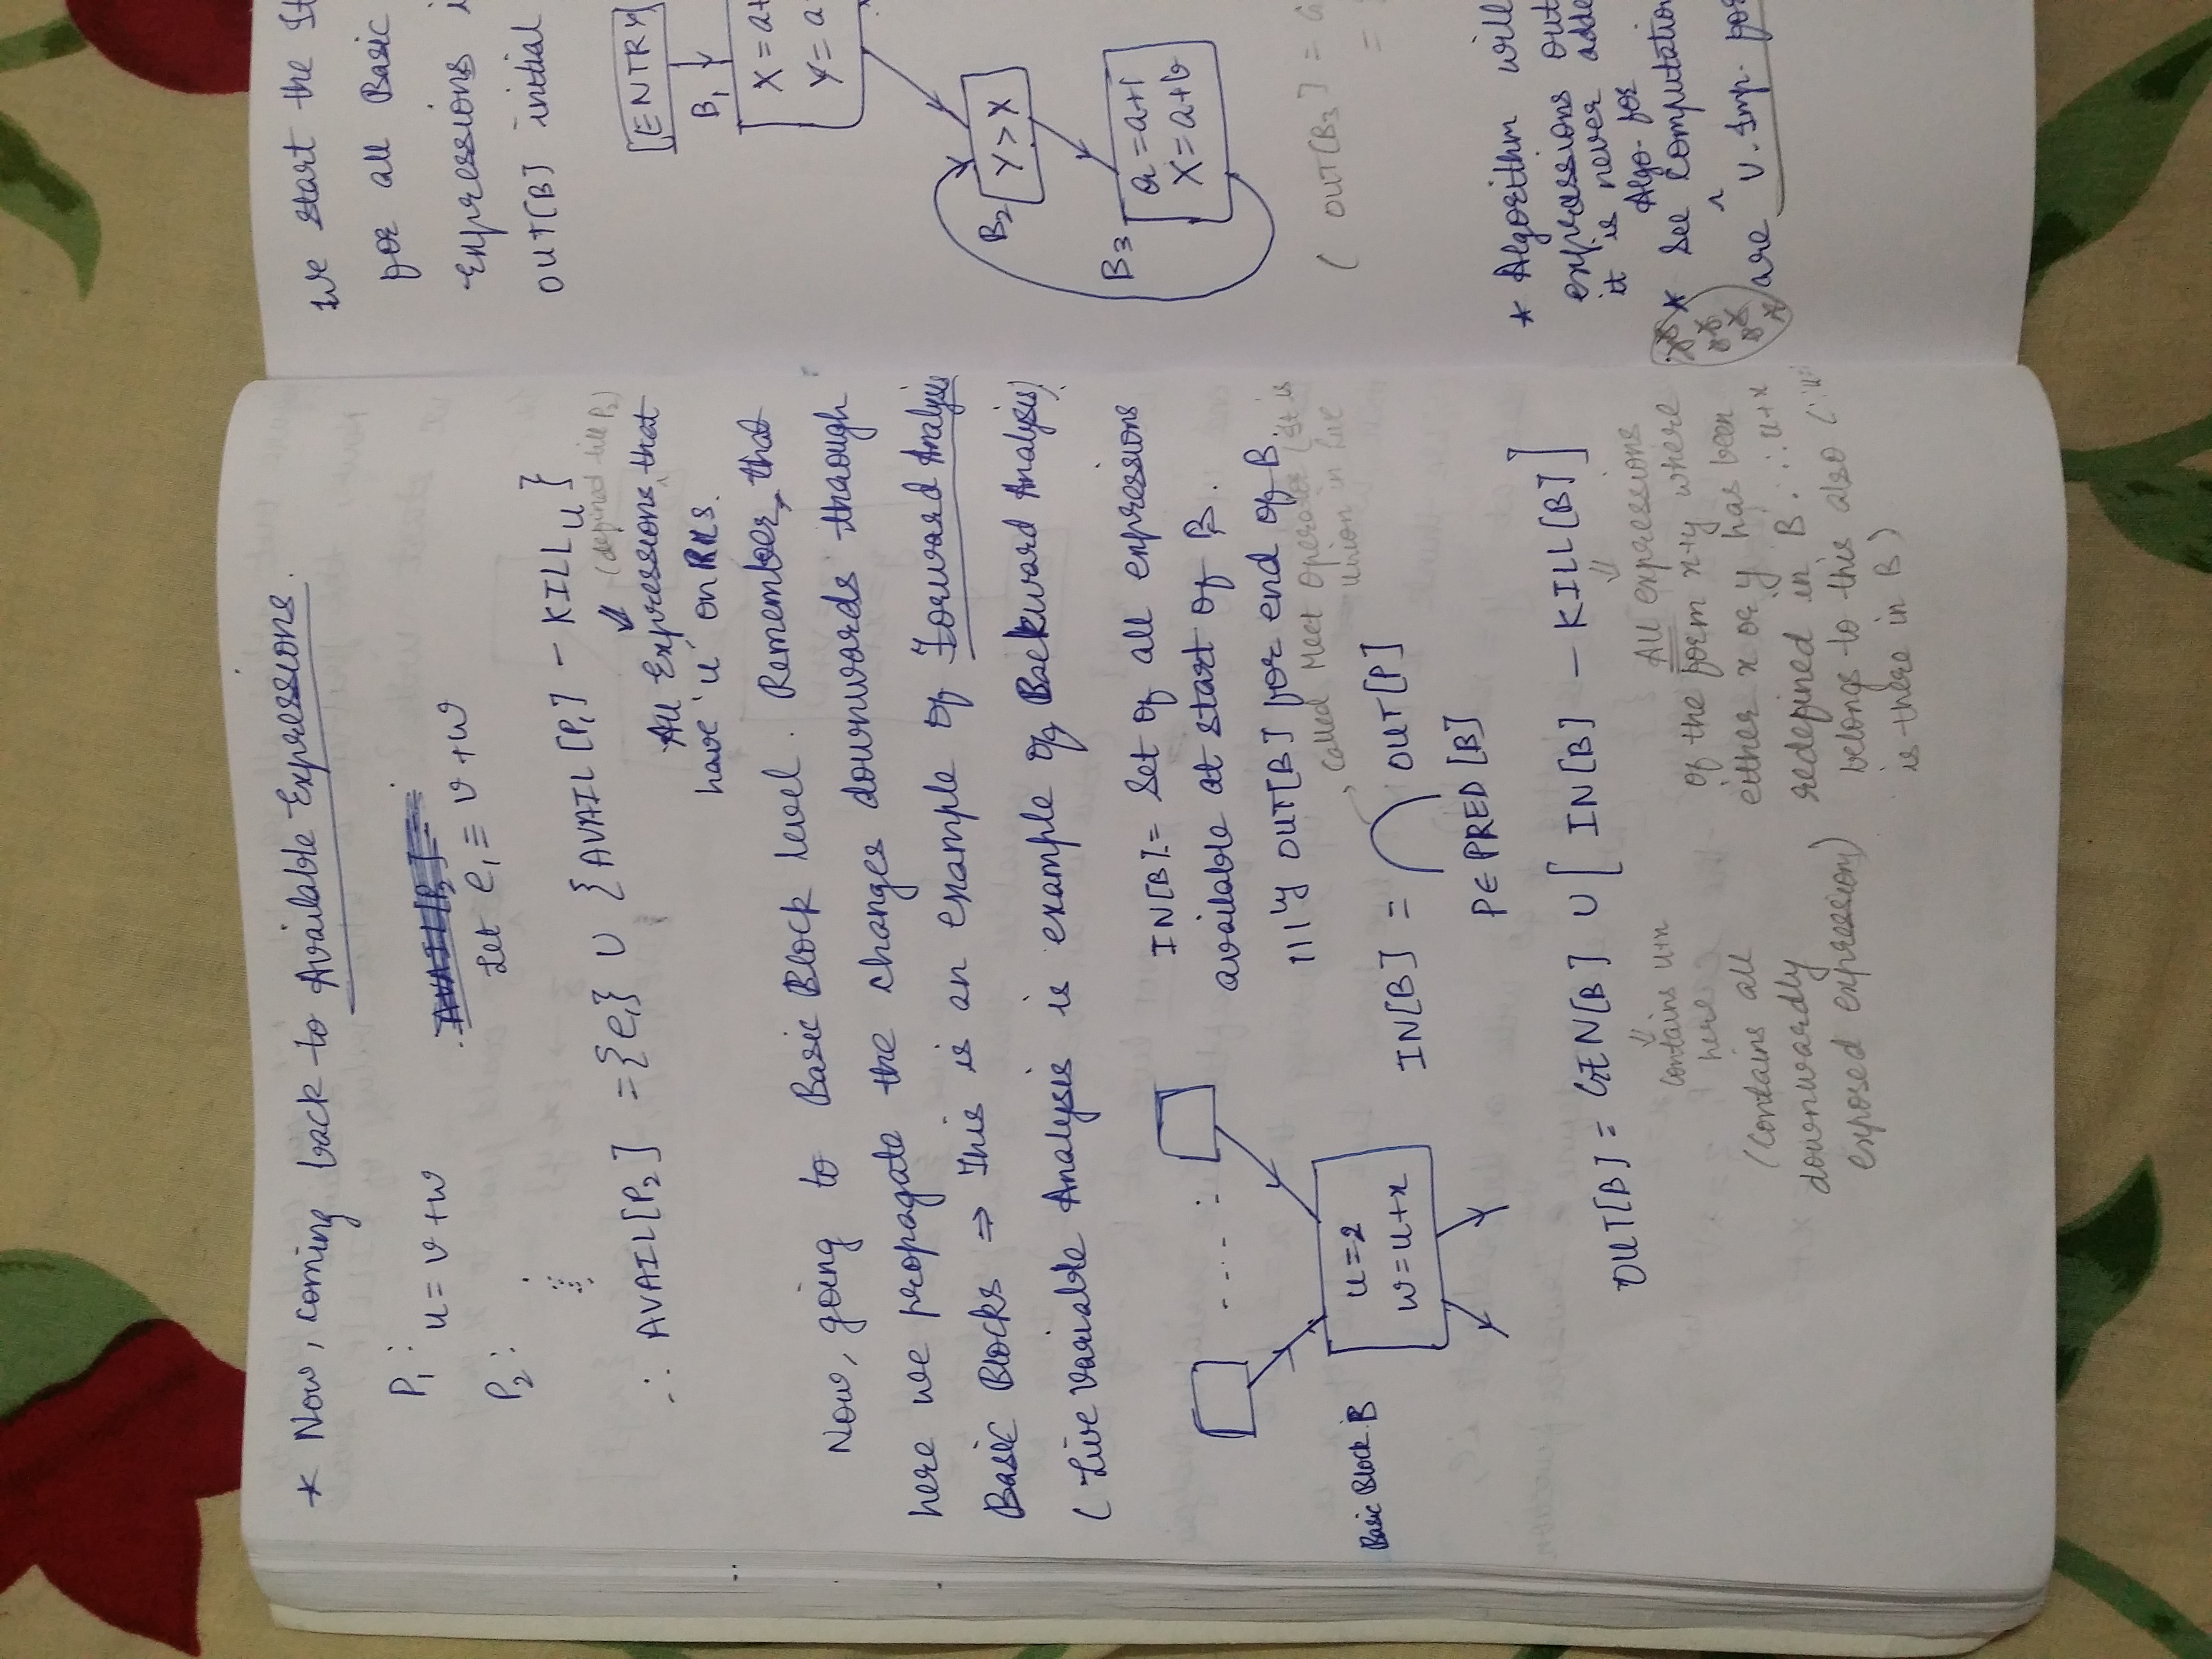 * Now, coming back to Available Expressions.
P₁ :
u = v + w
AVAIL[P₂] =
Let e₁ ≡ v + w
P₂ :
∴ AVAIL[P₂] = {e₁} ∪ {AVAIL[P₁] - KILL u}
(defined till P₂)
⇓
All Expressions ^ that
have 'u' on RHS.
Now, going to Basic Block level. Remember, that
here we propagate the changes downwards through
Basic Blocks ⇒ This is an example of Forward Analysis
(Live Variable Analysis is example of Backward Analysis)
IN[B] = Set of all expressions
available at start of B.
|||ly OUT[B] for end of B.
Called Meet Operator (It is
Union in Live
Basic Block B
u = 2
w = u + x
IN[B] = ∩ OUT[P]
P ∈ PRED[B]
OUT[B] = GEN[B] ∪ [ IN[B] - KILL[B] ]
⇓
Contains u+x
here
(Contains all
downwardly
exposed expression)
⇓
All expressions
of the form x+y where
either x or y has been
redefined in B. ∴ u+x
belongs to this also (∵ u
is there in B)
We start the It
for all Basic
Expressions i
OUT[B] initial
ENTRY
B₁
X = a+
Y = a
B₂
Y > X
B₃
a = a+1
X = a+b
( OUT[B₃] = G
=
* Algorithm will
expressions out
it is never adde
Algo. for
* See ^ Computation
are V. Imp. for